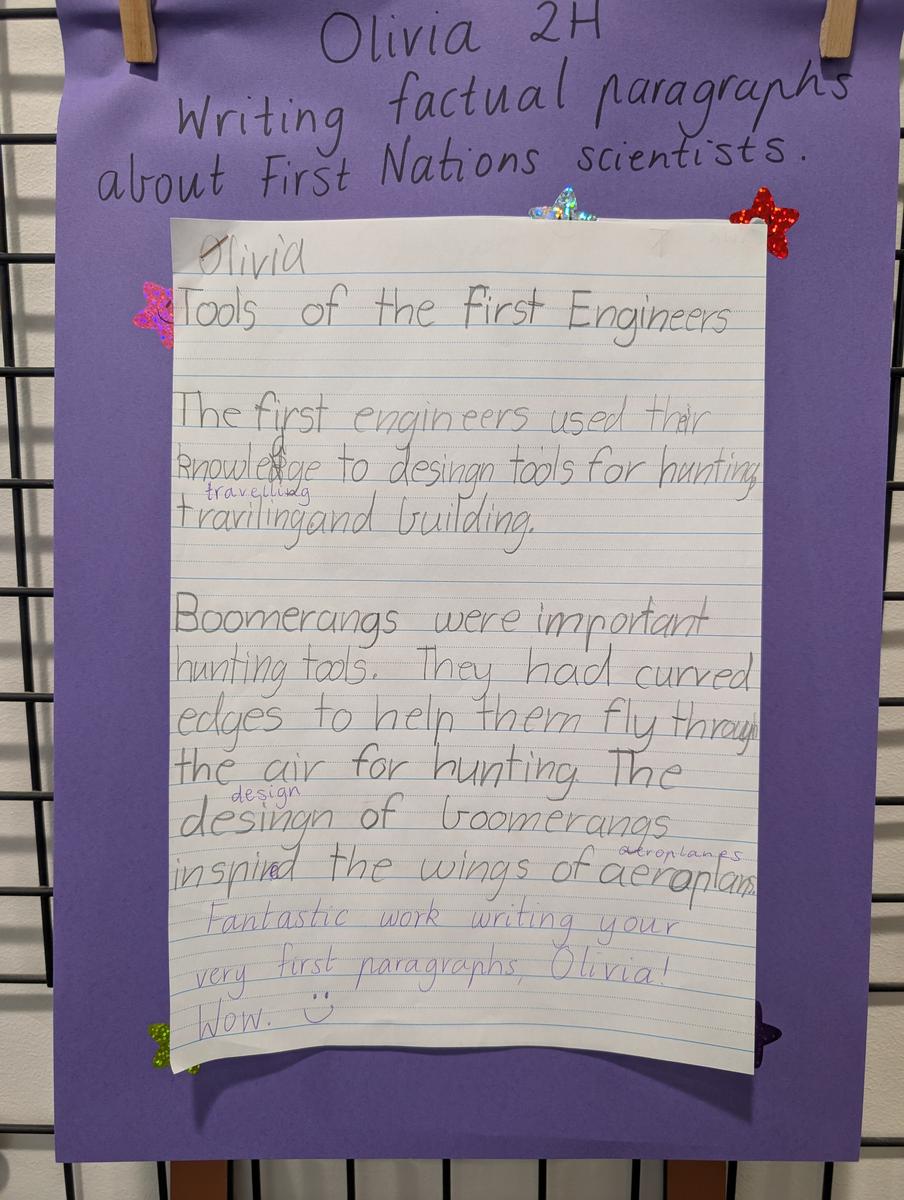 Olivia 2H
Writing factual paragraphs
about First Nations scientists.
Olivia
Tools of the First Engineers
The first engineers used thir
knowledge to desingn tools for hunting,
travelling
travilingand building.
Boomerangs were important
hunting tools. They had curved
edges to help them fly through
the air for hunting. The
design
desingn of boomerangs
aeroplanes
inspired the wings of aeroplans.
Fantastic work writing your
very first paragraphs, Olivia!
Wow. :)